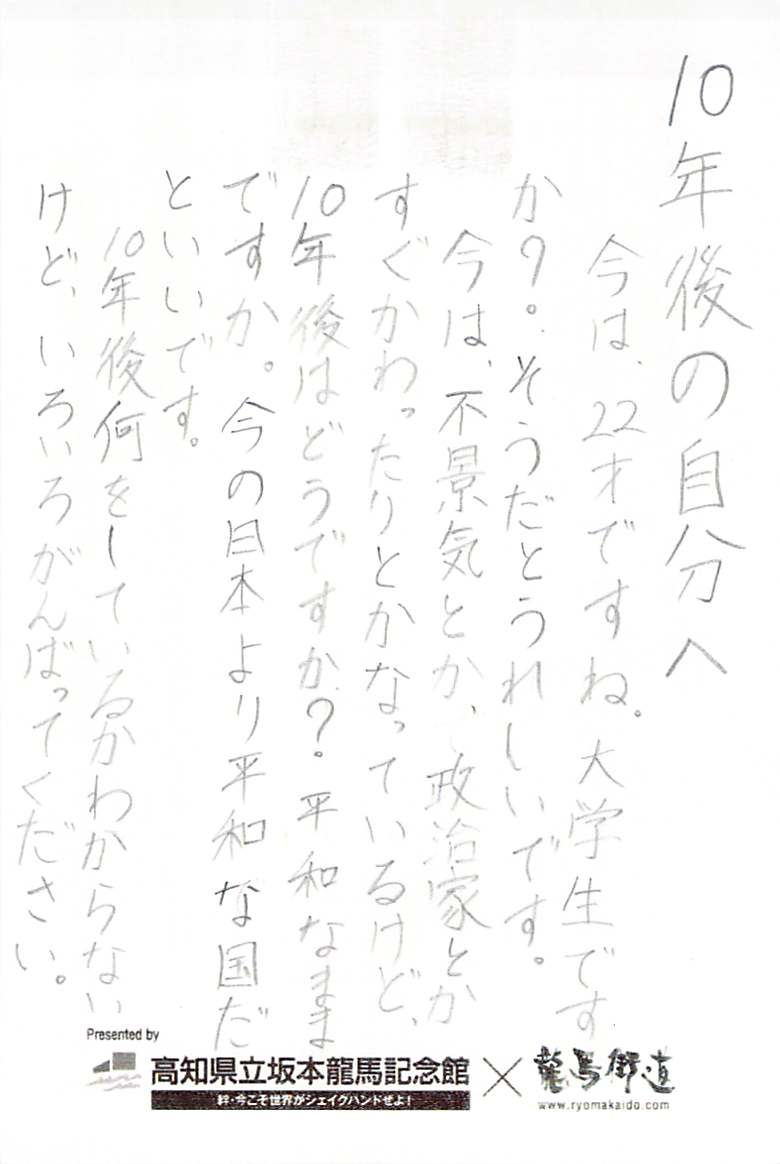 10年後の自分へ
今は、22才ですね。大学生です
か?。そうだとうれしいです。
今は、不景気とか、政治家とか
すぐかわったりとかなっているけど、
10年後はどうですか?。平和なまま
ですか。今の日本より平和な国だ
といいです。
10年後何をしているかわからない
けど、いろいろがんばってください。
Presented by
高知県立坂本龍馬記念館
絆・今こそ世界がシェイクハンドぜよ!
×
龍馬街道
www.ryomakaido.com